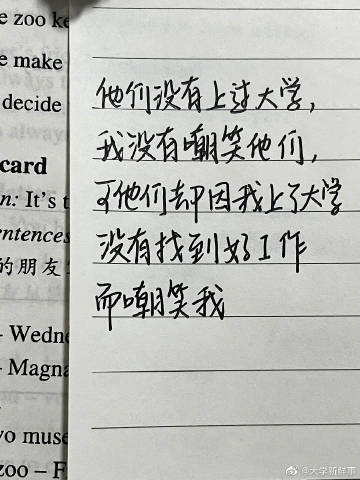 e zoo ke
e make
decide
card
n: It's t
entences
的朋友
– Wedne
– Magna
o muse
zoo – F
他们没有上过大学，
我没有嘲笑他们，
可他们却因我上了大学
没有找到好工作
而嘲笑我
@大学新鲜事